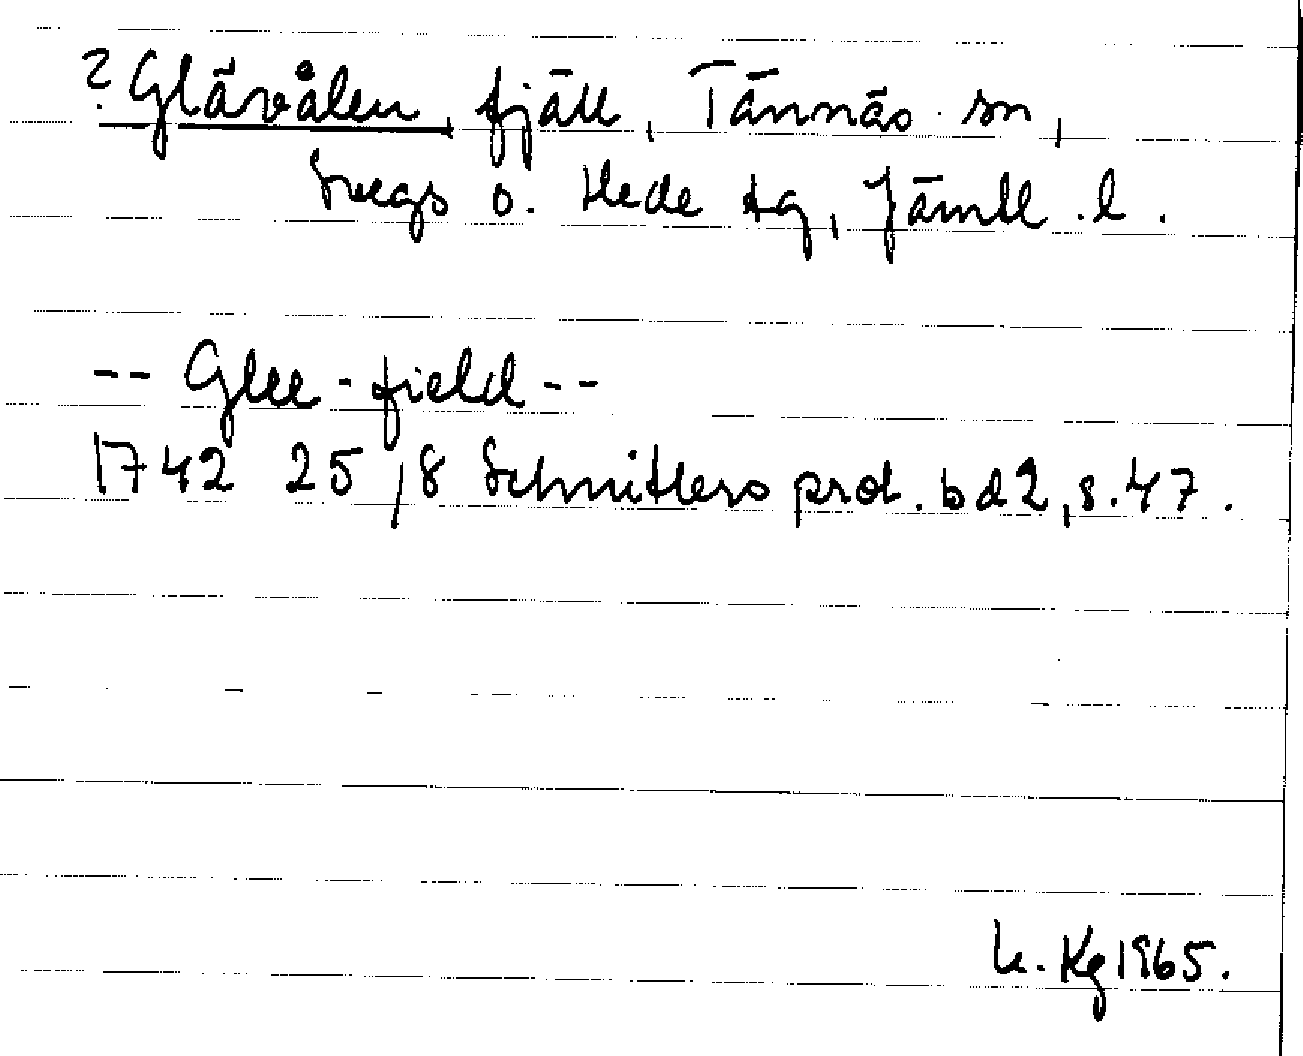 ? Glävålen, fjäll, Tännäs sn,
Svegs o. Hede tg, Jämtl. l.
-- Glee-field --
1742 25/8 Schnitlers prot. bd 2, s. 47.
Kg 1965.